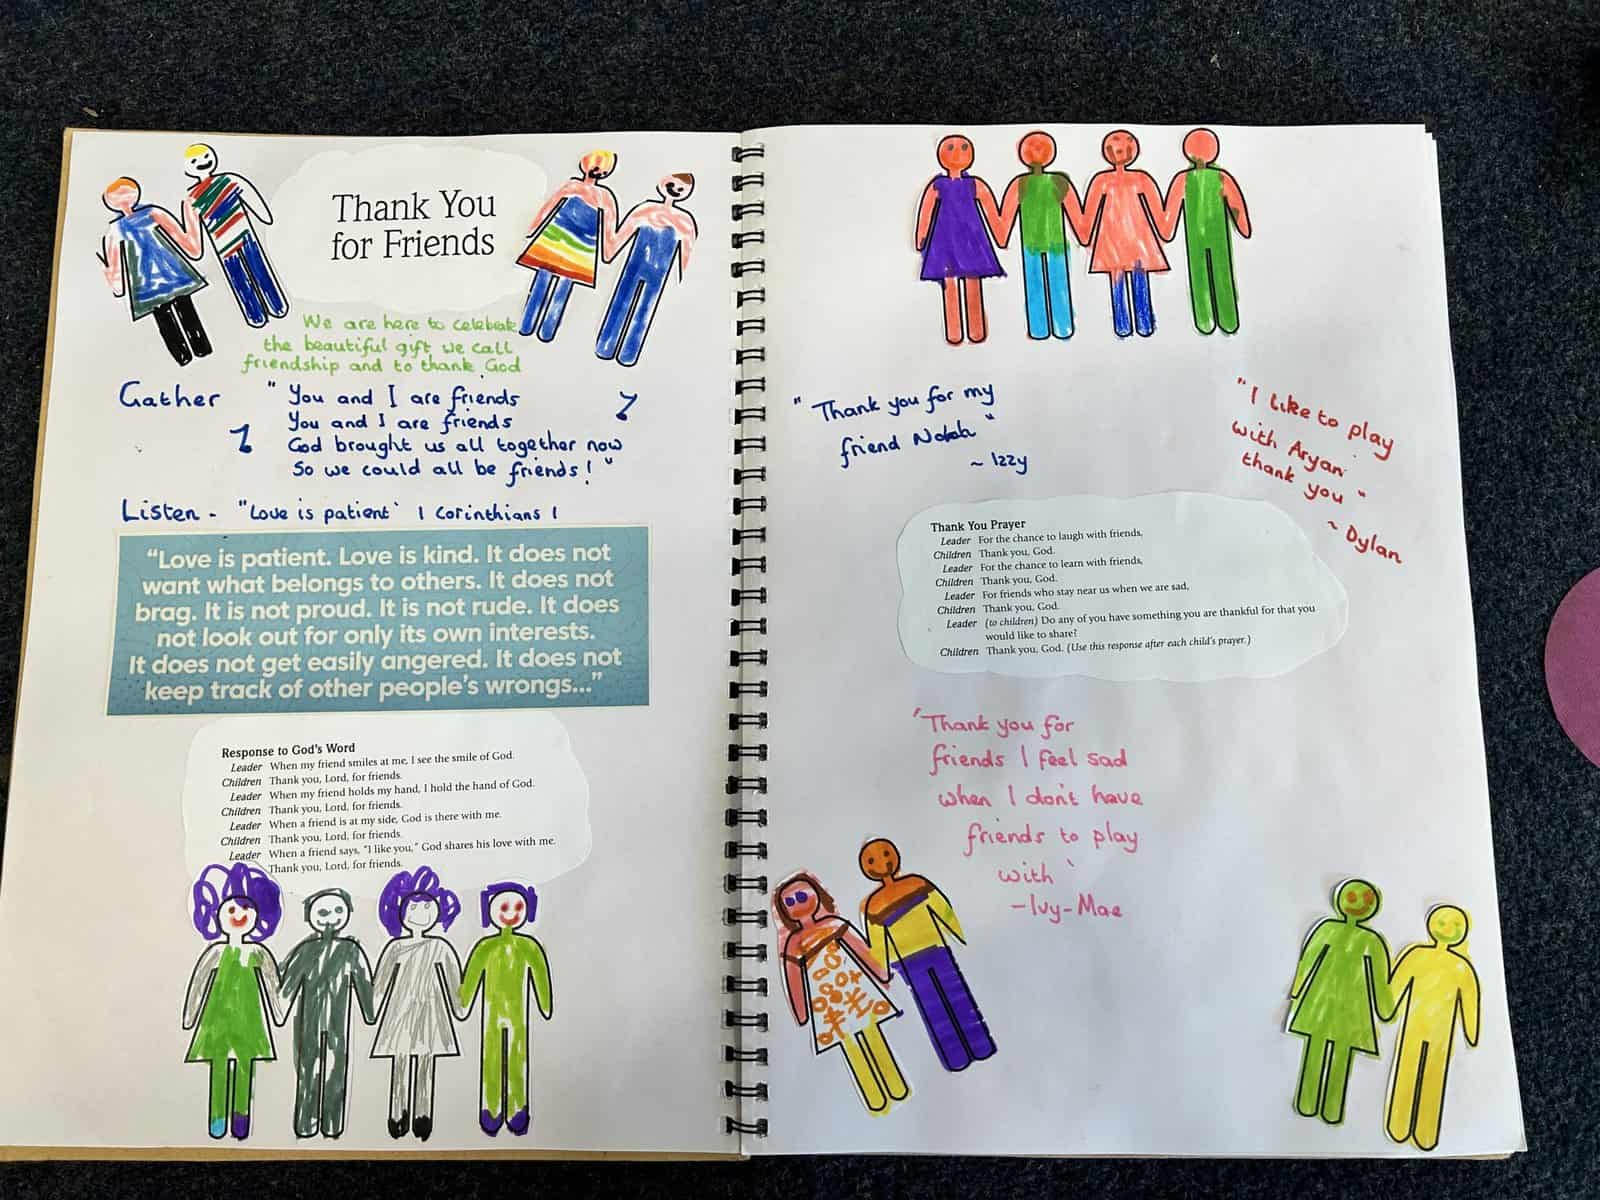 Thank You
for Friends
We are here to celebrate
the beautiful gift we call
friendship and to thank God
Gather "You and I are friends
You and I are friends
God brought us all together now
So we could all be friends!"
Listen - "Love is patient" 1 Corinthians 1
"Love is patient. Love is kind. It does not
want what belongs to others. It does not
brag. It is not proud. It is not rude. It does
not look out for only its own interests.
It does not get easily angered. It does not
keep track of other people's wrongs..."
Response to God's Word
Leader When my friend smiles at me, I see the smile of God.
Children Thank you, Lord, for friends.
Leader When my friend holds my hand, I hold the hand of God.
Children Thank you, Lord, for friends.
Leader When a friend is at my side, God is there with me.
Children Thank you, Lord, for friends.
Leader When a friend says, "I like you," God shares his love with me.
Thank you, Lord, for friends.
"Thank you for my
friend"
~ Izzy
"I like to play
with Aryan
thank you"
~ Dylan
Thank You Prayer
Leader For the chance to laugh with friends,
Children Thank you, God.
Leader For the chance to learn with friends,
Children Thank you, God.
Leader For friends who stay near us when we are sad,
Children Thank you, God.
Leader (to children) Do any of you have something you are thankful for that you
would like to share?
Children Thank you, God. (Use this response after each child's prayer.)
'Thank you for
friends I feel sad
when I don't have
friends to play
with'
-Ivy-Mae